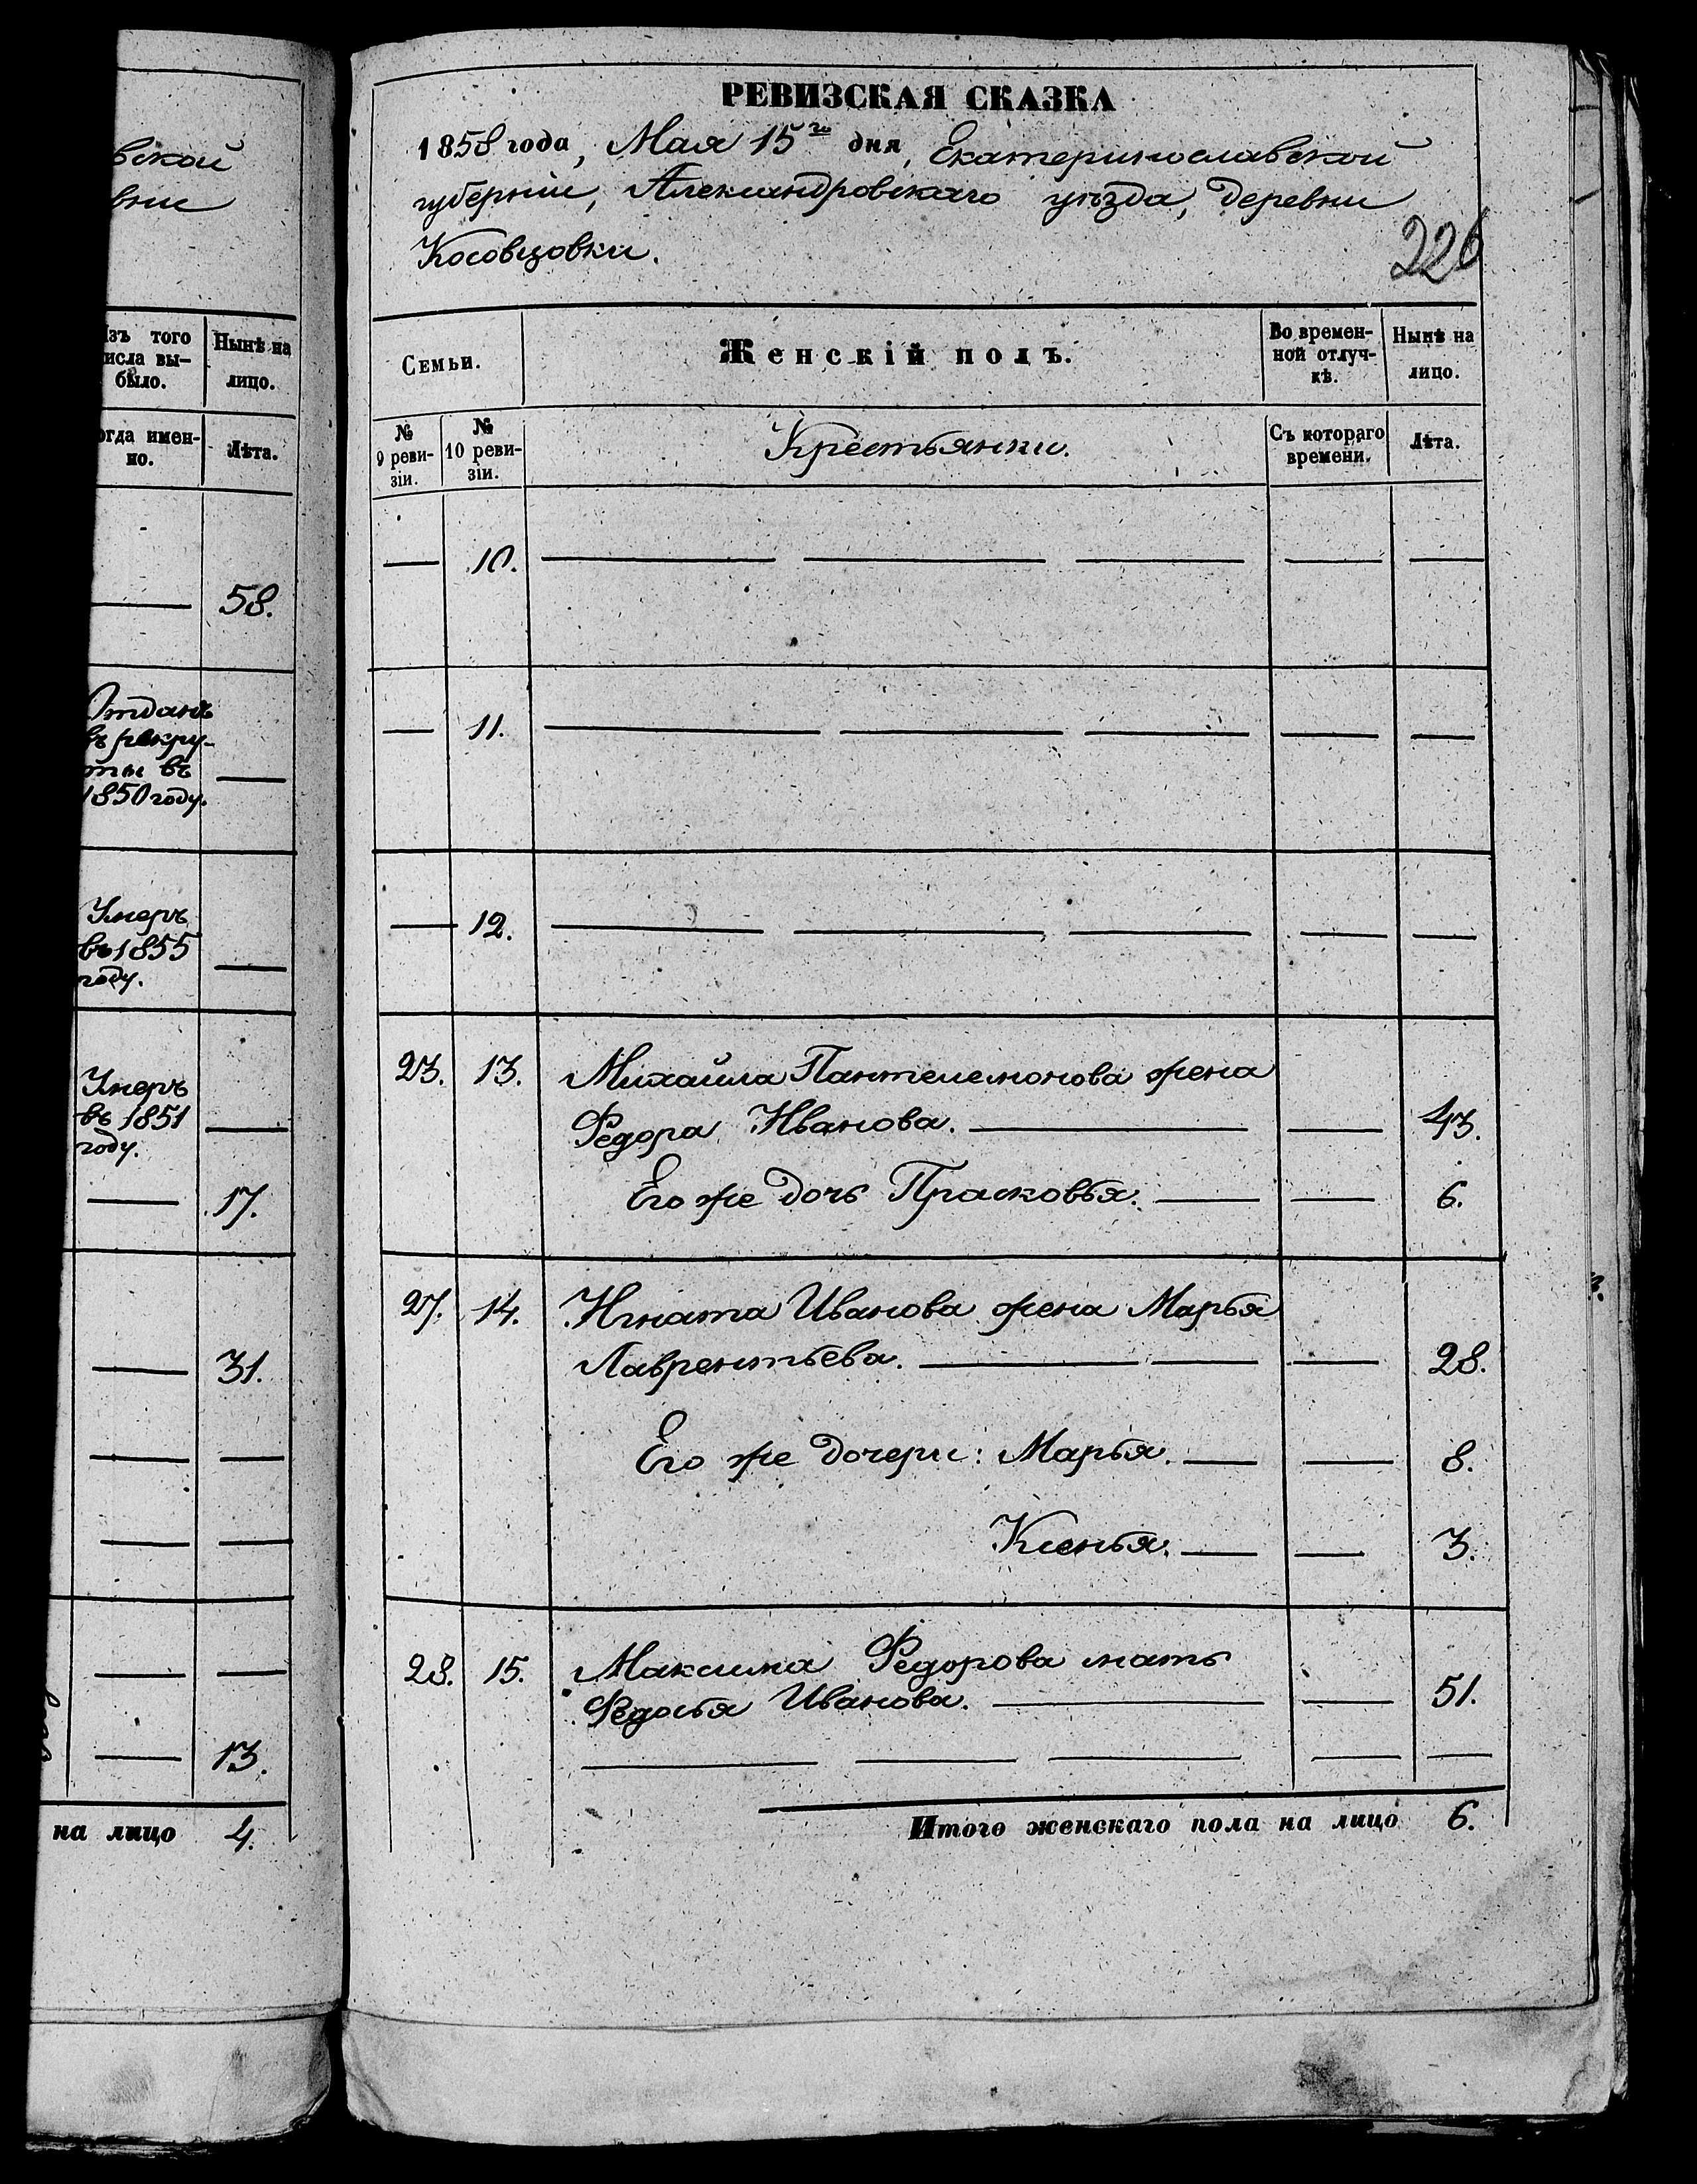 вской
вни
Изъ того
числа вы-
было.
Нынѣ на
лицо.
огда имен-
но.
Лѣта.
58.
Отданъ
въ рекру-
ты въ
1850 году.
Умеръ
въ 1855
году.
Умеръ
въ 1851
году.
17.
31.
13.
на лицо 4.
РЕВИЗСКАЯ СКАЗКА
1858 года, Мая 15го дня, Екатеринославской
губерніи, Александровскаго уѣзда, деревни
Косовцовки.
226
Семьи.
Женскій полъ.
Во времен-
ной отлуч-
кѣ.
Нынѣ на
лицо.
№
9 реви-
зіи.
№
10 реви-
зіи.
Крестьянки.
Съ котораго
времени.
Лѣта.
— 10. — — — — —
— 11. — — — — —
— 12. — — — — —
23. 13. Михайла Пантелемонова жена
Федора Иванова. — — 43.
Его же дочь Прасковья. — — 6.
27. 14. Игната Иванова жена Марья
Лаврентьева. — — — 28.
Его же дочери: Марья. — — 8.
Ксенья. — — 3.
28. 15. Максима Федорова мать
Федосья Иванова. — — 51.
— — — — —
Итого женскаго пола на лицо 6.